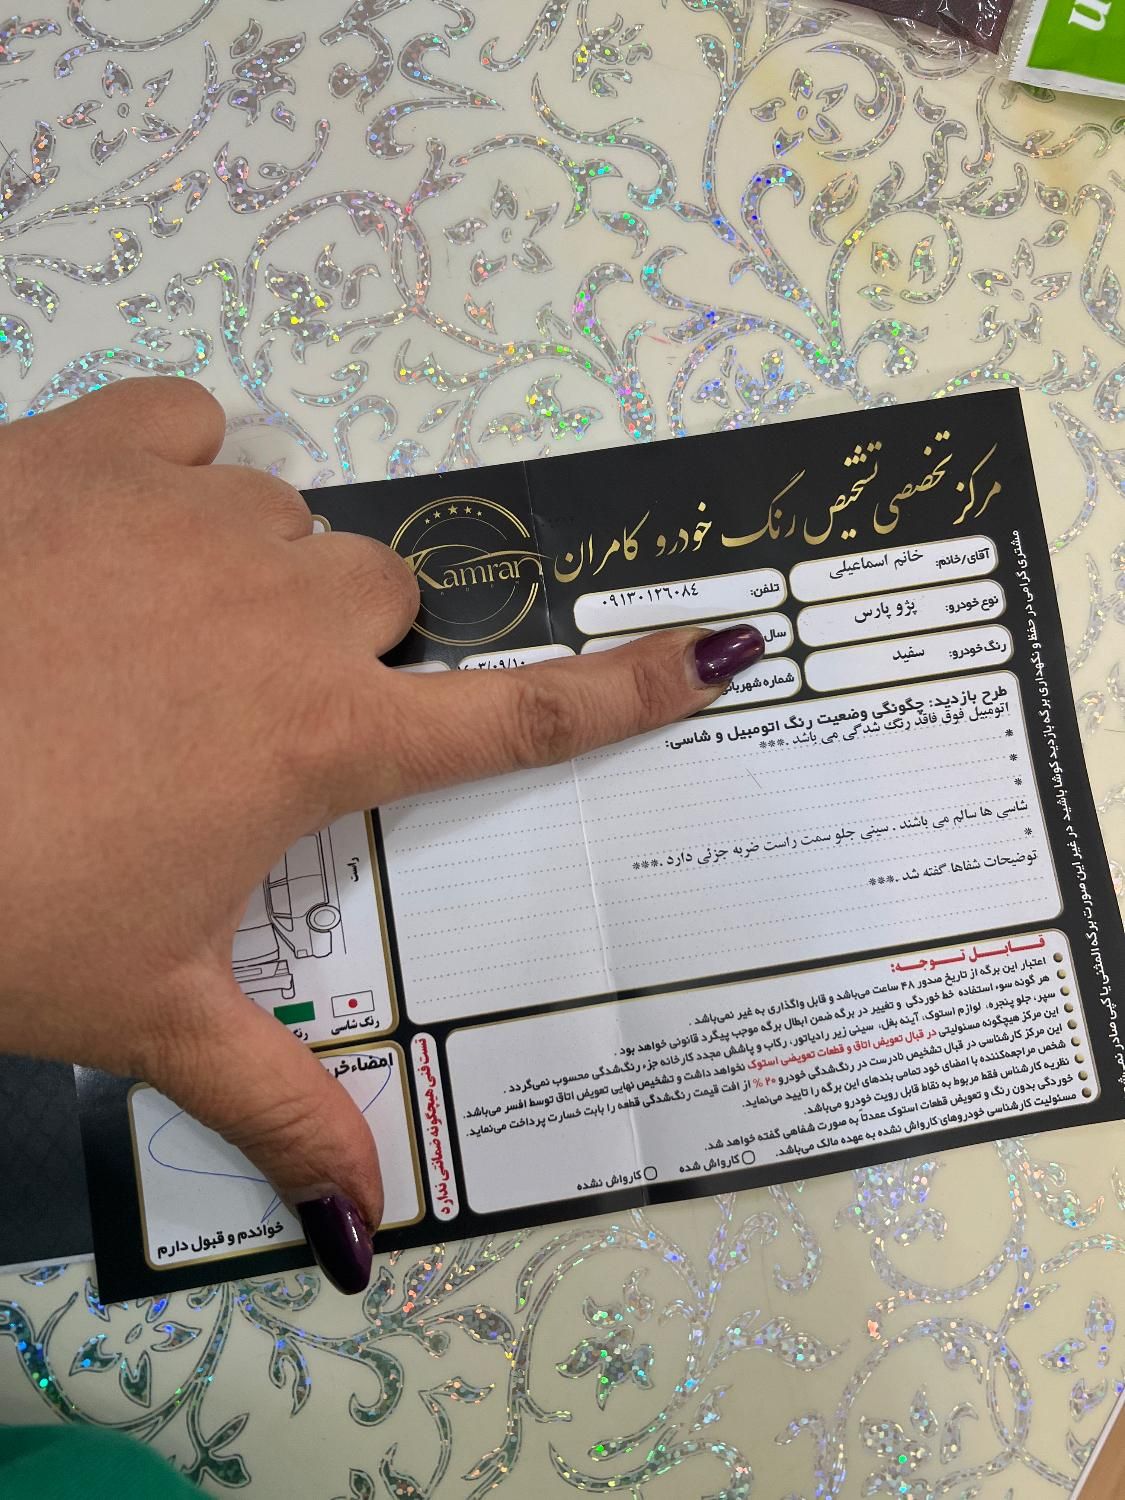 مرکز تخصصی تشخیص رنگ خودرو کامران
Kamran
آقای/خانم: خانم اسماعیلی
تلفن: ۰۹۱۳۰۱۲۶۰۸۴
نوع خودرو: پژو پارس
سال
رنگ خودرو: سفید
شماره شهربانی
طرح بازدید: چگونگی وضعیت رنگ اتومبیل و شاسی:
اتومبیل فوق فاقد رنگ شدگی می باشد .***
*
*
*
شاسی ها سالم می باشند . سینی جلو سمت راست ضربه جزئی دارد .***
*
توضیحات شفاها گفته شد .***
قـابـل تـوجـه:
اعتبار این برگه از تاریخ صدور ۴۸ ساعت می‌باشد و قابل واگذاری به غیر نمی‌باشد .
هر گونه سوء استفاده خط خوردگی و تغییر در برگه ضمن ابطال برگه موجب پیگرد قانونی خواهد بود .
سپر، جلو پنجره، لوازم استوک، آینه بغل، سینی زیر رادیاتور، رکاب و پاشش مجدد کارخانه جزء رنگ‌شدگی محسوب نمی‌گردد .
این مرکز هیچگونه مسئولیتی در قبال تعویض اتاق و قطعات تعویضی استوک نخواهد داشت و تشخیص نهایی تعویض اتاق توسط افسر می‌باشد.
این مرکز کارشناسی در قبال تشخیص نادرست در رنگ‌شدگی خودرو ۲۰ % از افت قیمت رنگ‌شدگی قطعه را بابت خسارت پرداخت می‌نماید.
شخص مراجعه‌کننده با امضای خود تمامی بندهای این برگه را تایید می‌نماید.
نظریه کارشناس فقط مربوط به نقاط قابل رویت خودرو می‌باشد.
خوردگی بدون رنگ و تعویض قطعات استوک عمدتاً به صورت شفاهی گفته خواهد شد.
مسئولیت کارشناسی خودروهای کارواش نشده به عهده مالک می‌باشد.
کارواش شده
کارواش نشده
تست فنی هیچگونه ضمانتی ندارد
راست
رنگ شاسی
امضاء
خواندم و قبول دارم
مشتری گرامی در حفظ و نگهداری برگه بازدید کوشا باشید در غیر این صورت برگه المثنی یا کپی صادر